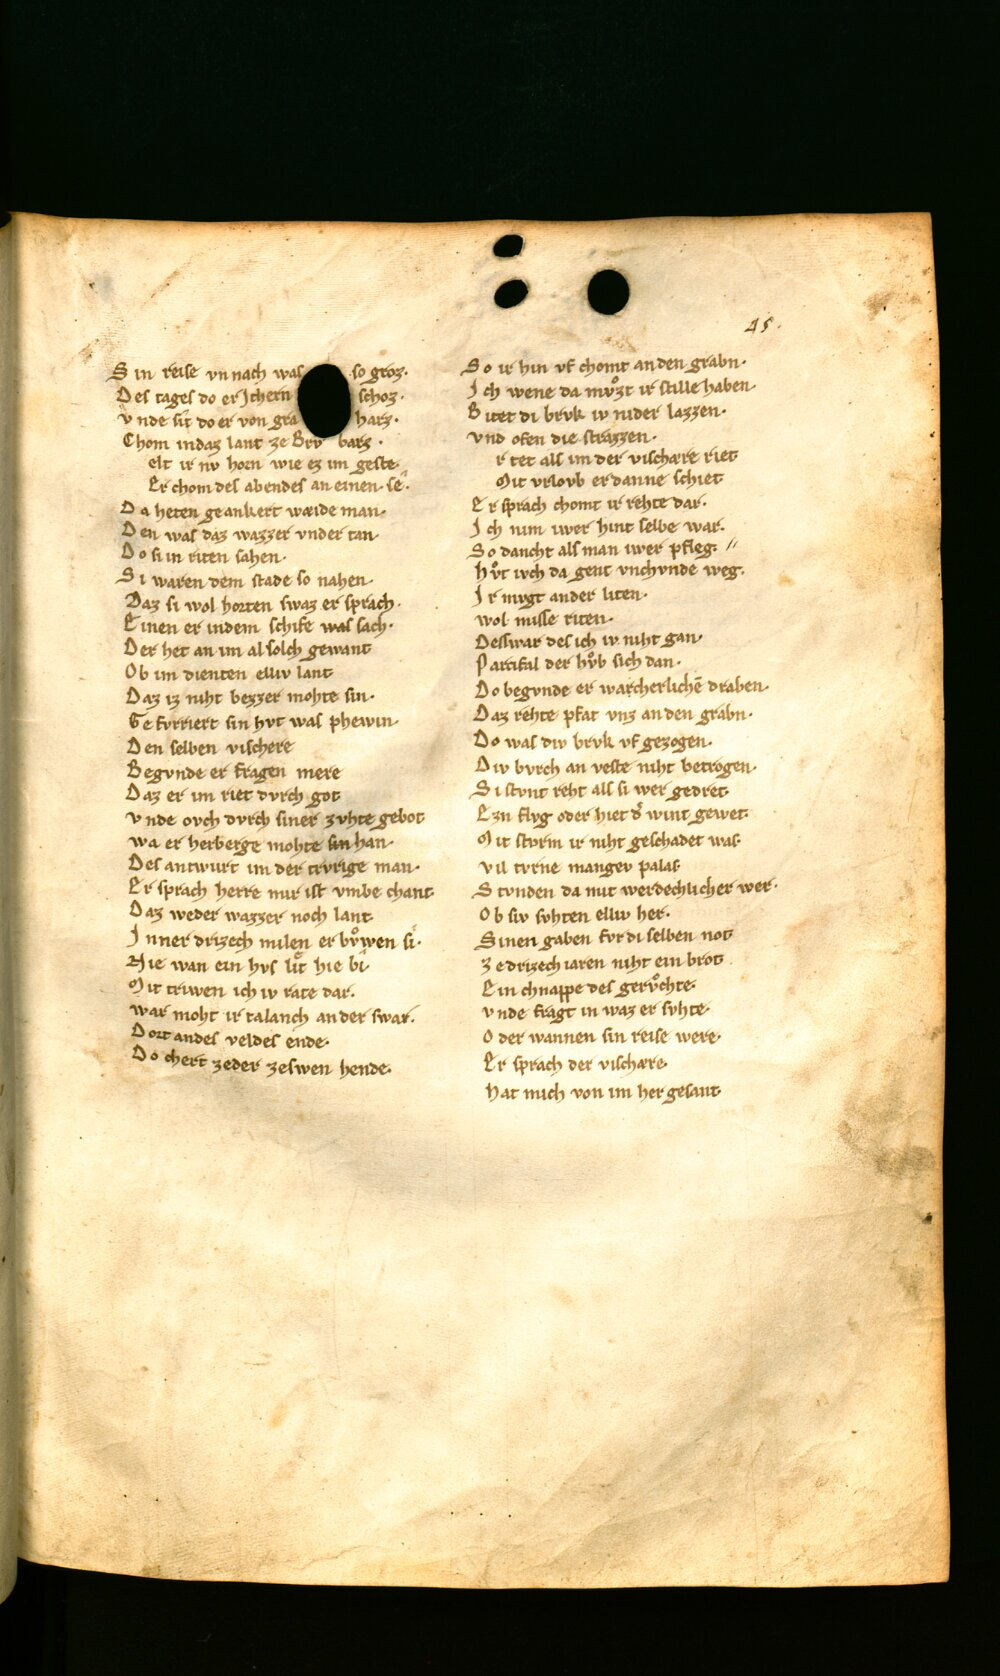 45.
Sin reise vn nach was so groz.
Des tages do er Jchern schoz.
vnde sit do er von gra harz.
Chom in daz lant ze Brv barz.
elt ir nv horn wie ez im geste.
Er chom des abendes an einen se.
Da heten geankert wæide man.
Den was daz wazzer vnder tan.
Do si in riten sahen.
Si waren dem stade so nahen.
Daz si wol horten swaz er sprach.
Einen er in dem schife was sach.
Der het an im al solch gewant
Ob im dienten elliv lant
Daz iz niht bezzer mohte sin.
Gefvrriert sin hvt was phewin.
Den selben vischere
Begvnde er fragen mere
Daz er im riet dvrch got
vnde ovch dvrch siner zvhte gebot
wa er herberge mohte sin han.
Des antwurt im der trvrige man.
Er sprach herre mir ist vmbe chant
Daz weder wazzer noch lant
Inner drizech milen erbvͦwen si.
Hie wan ein hvs lit hie bi
Mit triwen ich iv rate dar.
war moht ir talanch ander swar.
Dort an des veldes ende.
Do chert ze der zeswen hende.
So ir hin vf chomt an den grabn.
Ich wene da mvͦzt ir stille haben.
Bitet di brvk iv nider lazzen.
vnd ofen die strazzen.
r tet als im der vischære riet
Mit vrlovb er danne schiet
Er sprach chomt ir rehte dar.
Ich nim iwer hint selbe war.
So dancht als man iwer pfleg.
hvͤt ivch da gent vnchvnde weg.
Ir mvgt an der liten.
wol misse riten.
Desswar des ich iv niht gan.
Parcifal der hvͦb sich dan.
Do begvnde er wæcherlichē draben.
Daz rehte pfat vnz an den grabn.
Do was div brvk vf gezogen.
Div bvrch an veste niht betrogen.
Si stvnt reht als si wer gedret
Ezn flvg oder hiet d wint gewet.
Mit stvrm ir niht geschadet was
vil tvrne manger palas
Stvnden da mit werdechlicher wer.
Ob siv svhten elliv her.
Sinen gaben fvr di selben not
Ze drizech iaren niht ein brot
Ein chnappe des gervͦchte.
vnde fragt in waz er svhte.
Oder wannen sin reise were.
Er sprach der vischære.
hat mich von im her gesant